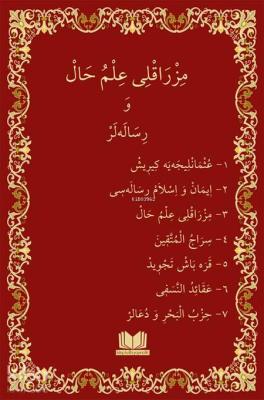 مِزْرَاقْلِي عِلْمُ حَالْ
وَ
رِسَالَه‌لَرْ
١- عُثْمَانْلِيجَه‌يَه كِيرِيشْ
٢- اِيمَانْ وَ اِسْلَامْ رِسَالَه‌سِى
٣- مِزْرَاقْلِي عِلْمُ حَالْ
٤- سِرَاجُ الْمُتَّقِينَ
٥- قَرَه بَاشْ تَجْوِيدْ
٦- عَقَائِدُ النَّسَفِى
٧- حِزْبُ الْبَحْرِ وَ دُعَالَرْ